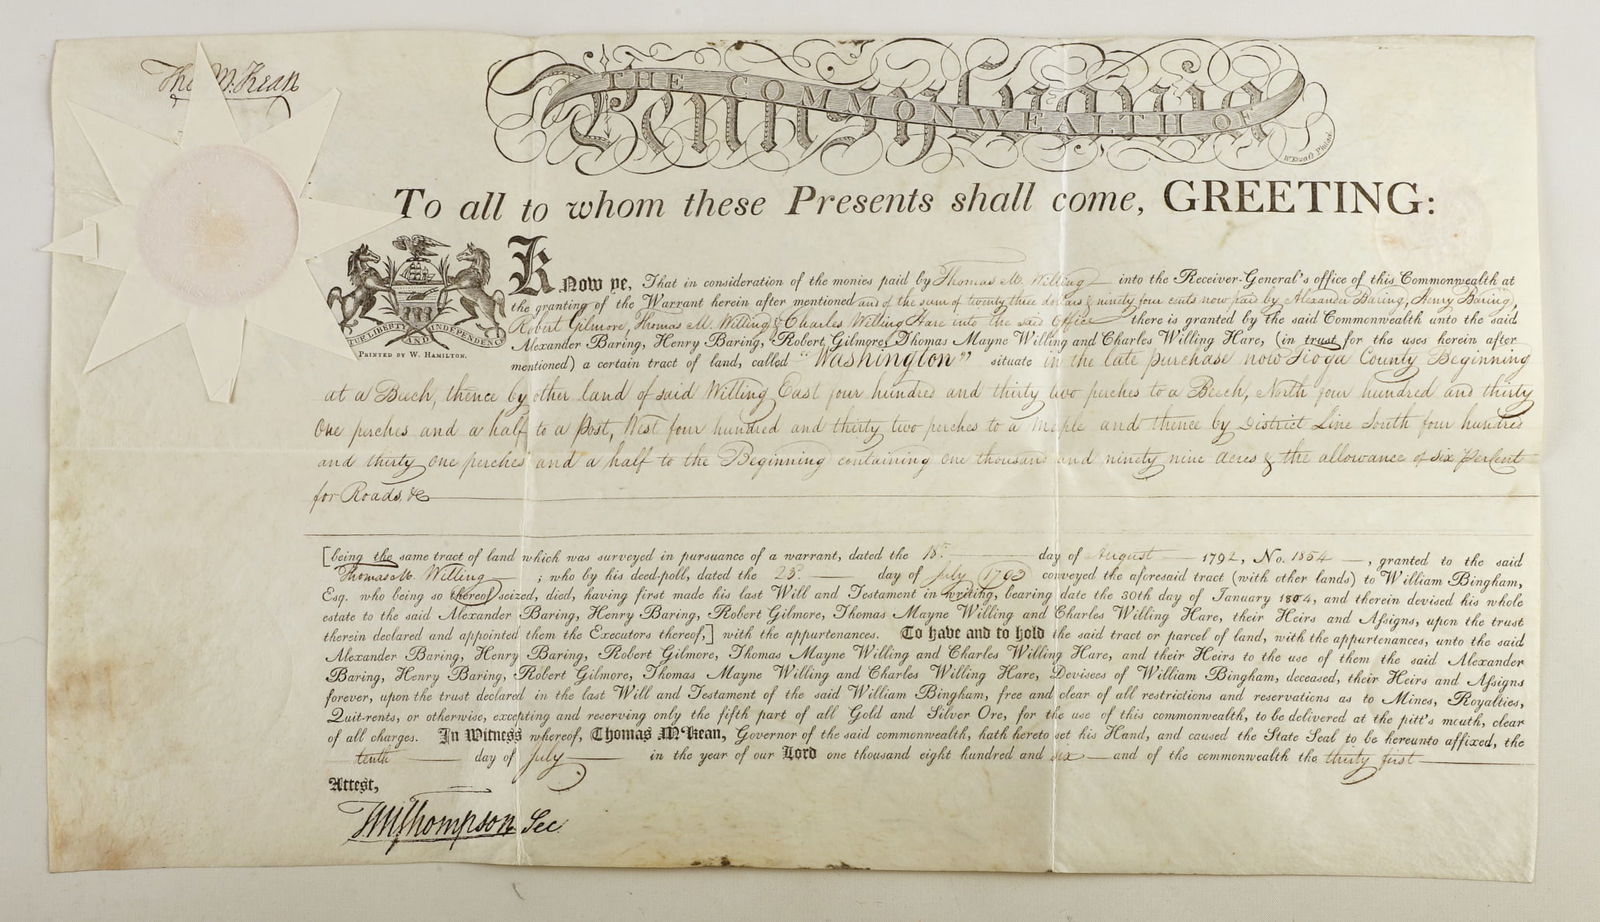 Tho M:Kean
THE COMMONWEALTH OF
Pennsylvania
To all to whom these Presents shall come, GREETING:
Know ye, That in consideration of the monies paid by Thomas M. Willing into the Receiver-General's office of this Commonwealth at
the granting of the Warrant herein after mentioned and of the sum of twenty three dollars & ninety four cents now paid by Alexander Baring, Henry Baring,
Robert Gilmore, Thomas M. Willing & Charles Willing Hare into the said Office there is granted by the said Commonwealth unto the said
Alexander Baring, Henry Baring, Robert Gilmore, Thomas Mayne Willing and Charles Willing Hare, (in trust for the uses herein after
mentioned) a certain tract of land, called "Washington" situate in the late purchase now Tioga County Beginning
VIRTUE LIBERTY AND INDEPENDENCE
PRINTED BY W. HAMILTON.
at a Beech, thence by other land of said Willing East four hundred and thirty two perches to a Beech, North four hundred and thirty
One perches and a half to a Post, West four hundred and thirty two perches to a Maple and thence by District Line South four hundred
and thirty one perches and a half to the Beginning containing one thousand and ninety nine acres & the allowance of six per Cent
for Roads, &c
[being the same tract of land which was surveyed in pursuance of a warrant, dated the 18th day of August 1792, No. 1854, granted to the said
Thomas M. Willing; who by his deed-poll, dated the 23d day of July 1793 conveyed the aforesaid tract (with other lands) to William Bingham,
Esq. who being so thereof seized, died, having first made his last Will and Testament in writing, bearing date the 30th day of January 1804, and therein devised his whole
estate to the said Alexander Baring, Henry Baring, Robert Gilmore, Thomas Mayne Willing and Charles Willing Hare, their Heirs and Assigns, upon the trust
therein declared and appointed them the Executors thereof,] with the appurtenances. To have and to hold the said tract or parcel of land, with the appurtenances, unto the said
Alexander Baring, Henry Baring, Robert Gilmore, Thomas Mayne Willing and Charles Willing Hare, and their Heirs to the use of them the said Alexander
Baring, Henry Baring, Robert Gilmore, Thomas Mayne Willing and Charles Willing Hare, Devisees of William Bingham, deceased, their Heirs and Assigns
forever, upon the trust declared in the last Will and Testament of the said William Bingham, free and clear of all restrictions and reservations as to Mines, Royalties,
Quit-rents, or otherwise, excepting and reserving only the fifth part of all Gold and Silver Ore, for the use of this commonwealth, to be delivered at the pitt's mouth, clear
of all charges. In Witness whereof, Thomas M'Kean, Governor of the said commonwealth, hath hereto set his Hand, and caused the State Seal to be hereunto affixed, the
tenth day of July in the year of our Lord one thousand eight hundred and six and of the commonwealth the thirty first
Attest,
TMThompson Sec